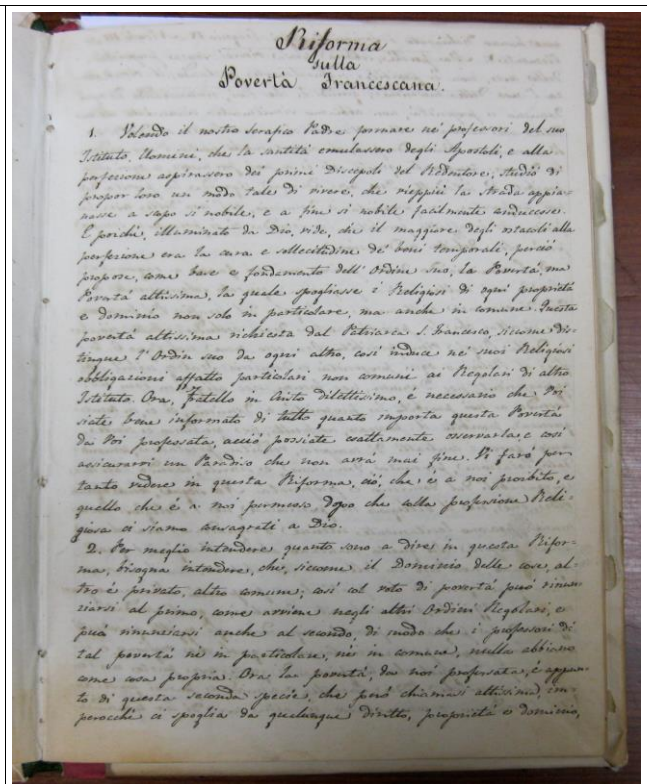 Riforma
sulla
Povertà Francescana.
1. Volendo il nostro Serafico Padre formare nei professori del suo
Istituto, Uomini, che la santità emulassero degli Apostoli, e alla
perfezione aspirassero dei primi Discepoli del Redentore, studiò di
propor loro un modo tale di vivere, che vieppiù la strada appia-
nasse a scopo sì nobile, e a fine sì nobile facilmente conducesse.
E poichè, illuminato da Dio, vide, che il maggiore degli ostacoli alla
perfezione era la cura e sollecitudine de' beni temporali, perciò
propose, come base e fondamento dell'Ordine suo, la Povertà, ma
Povertà altissima, la quale spogliasse i Religiosi di ogni proprietà
e dominio non solo in particolare, ma anche in comune. Questa
povertà altissima richiesta dal Patriarca S. Francesco, siccome dis-
tingue l'Ordin suo da ogni altro, così induce nei suoi Religiosi
obbligazioni affatto particolari non comuni ai Regolari di altro
Istituto. Ora, Fratello in Cristo dilettissimo, è necessario che Voi
siate bene informato di tutto quanto importa questa Povertà
da Voi professata, acciò possiate esattamente osservarla, e così
assicurarvi un Paradiso che non avrà mai fine. Vi farò per-
tanto vedere in questa Riforma, ciò, che è a noi proibito, e
quello che è a noi permesso dopo che colla professione Reli-
giosa ci siamo consagrati a Dio.
2. Per meglio intendere quanto sono a dire in questa Rifor-
ma, bisogna intendere, che, siccome il Dominio delle cose, al-
tro è privato, altro comune; così col voto di povertà può rinun-
ziarsi al primo, come avviene negli altri Ordini Regolari, e
può rinunziarsi anche al secondo, di modo che i professori di
tal povertà nè in particolare, nè in comune, nulla abbiano
come cosa propria. Ora la povertà, da noi professata, è appun-
to di questa seconda specie, che però chiamasi altissima, im-
perocchè ci spoglia da qualunque diritto, proprietà e dominio,